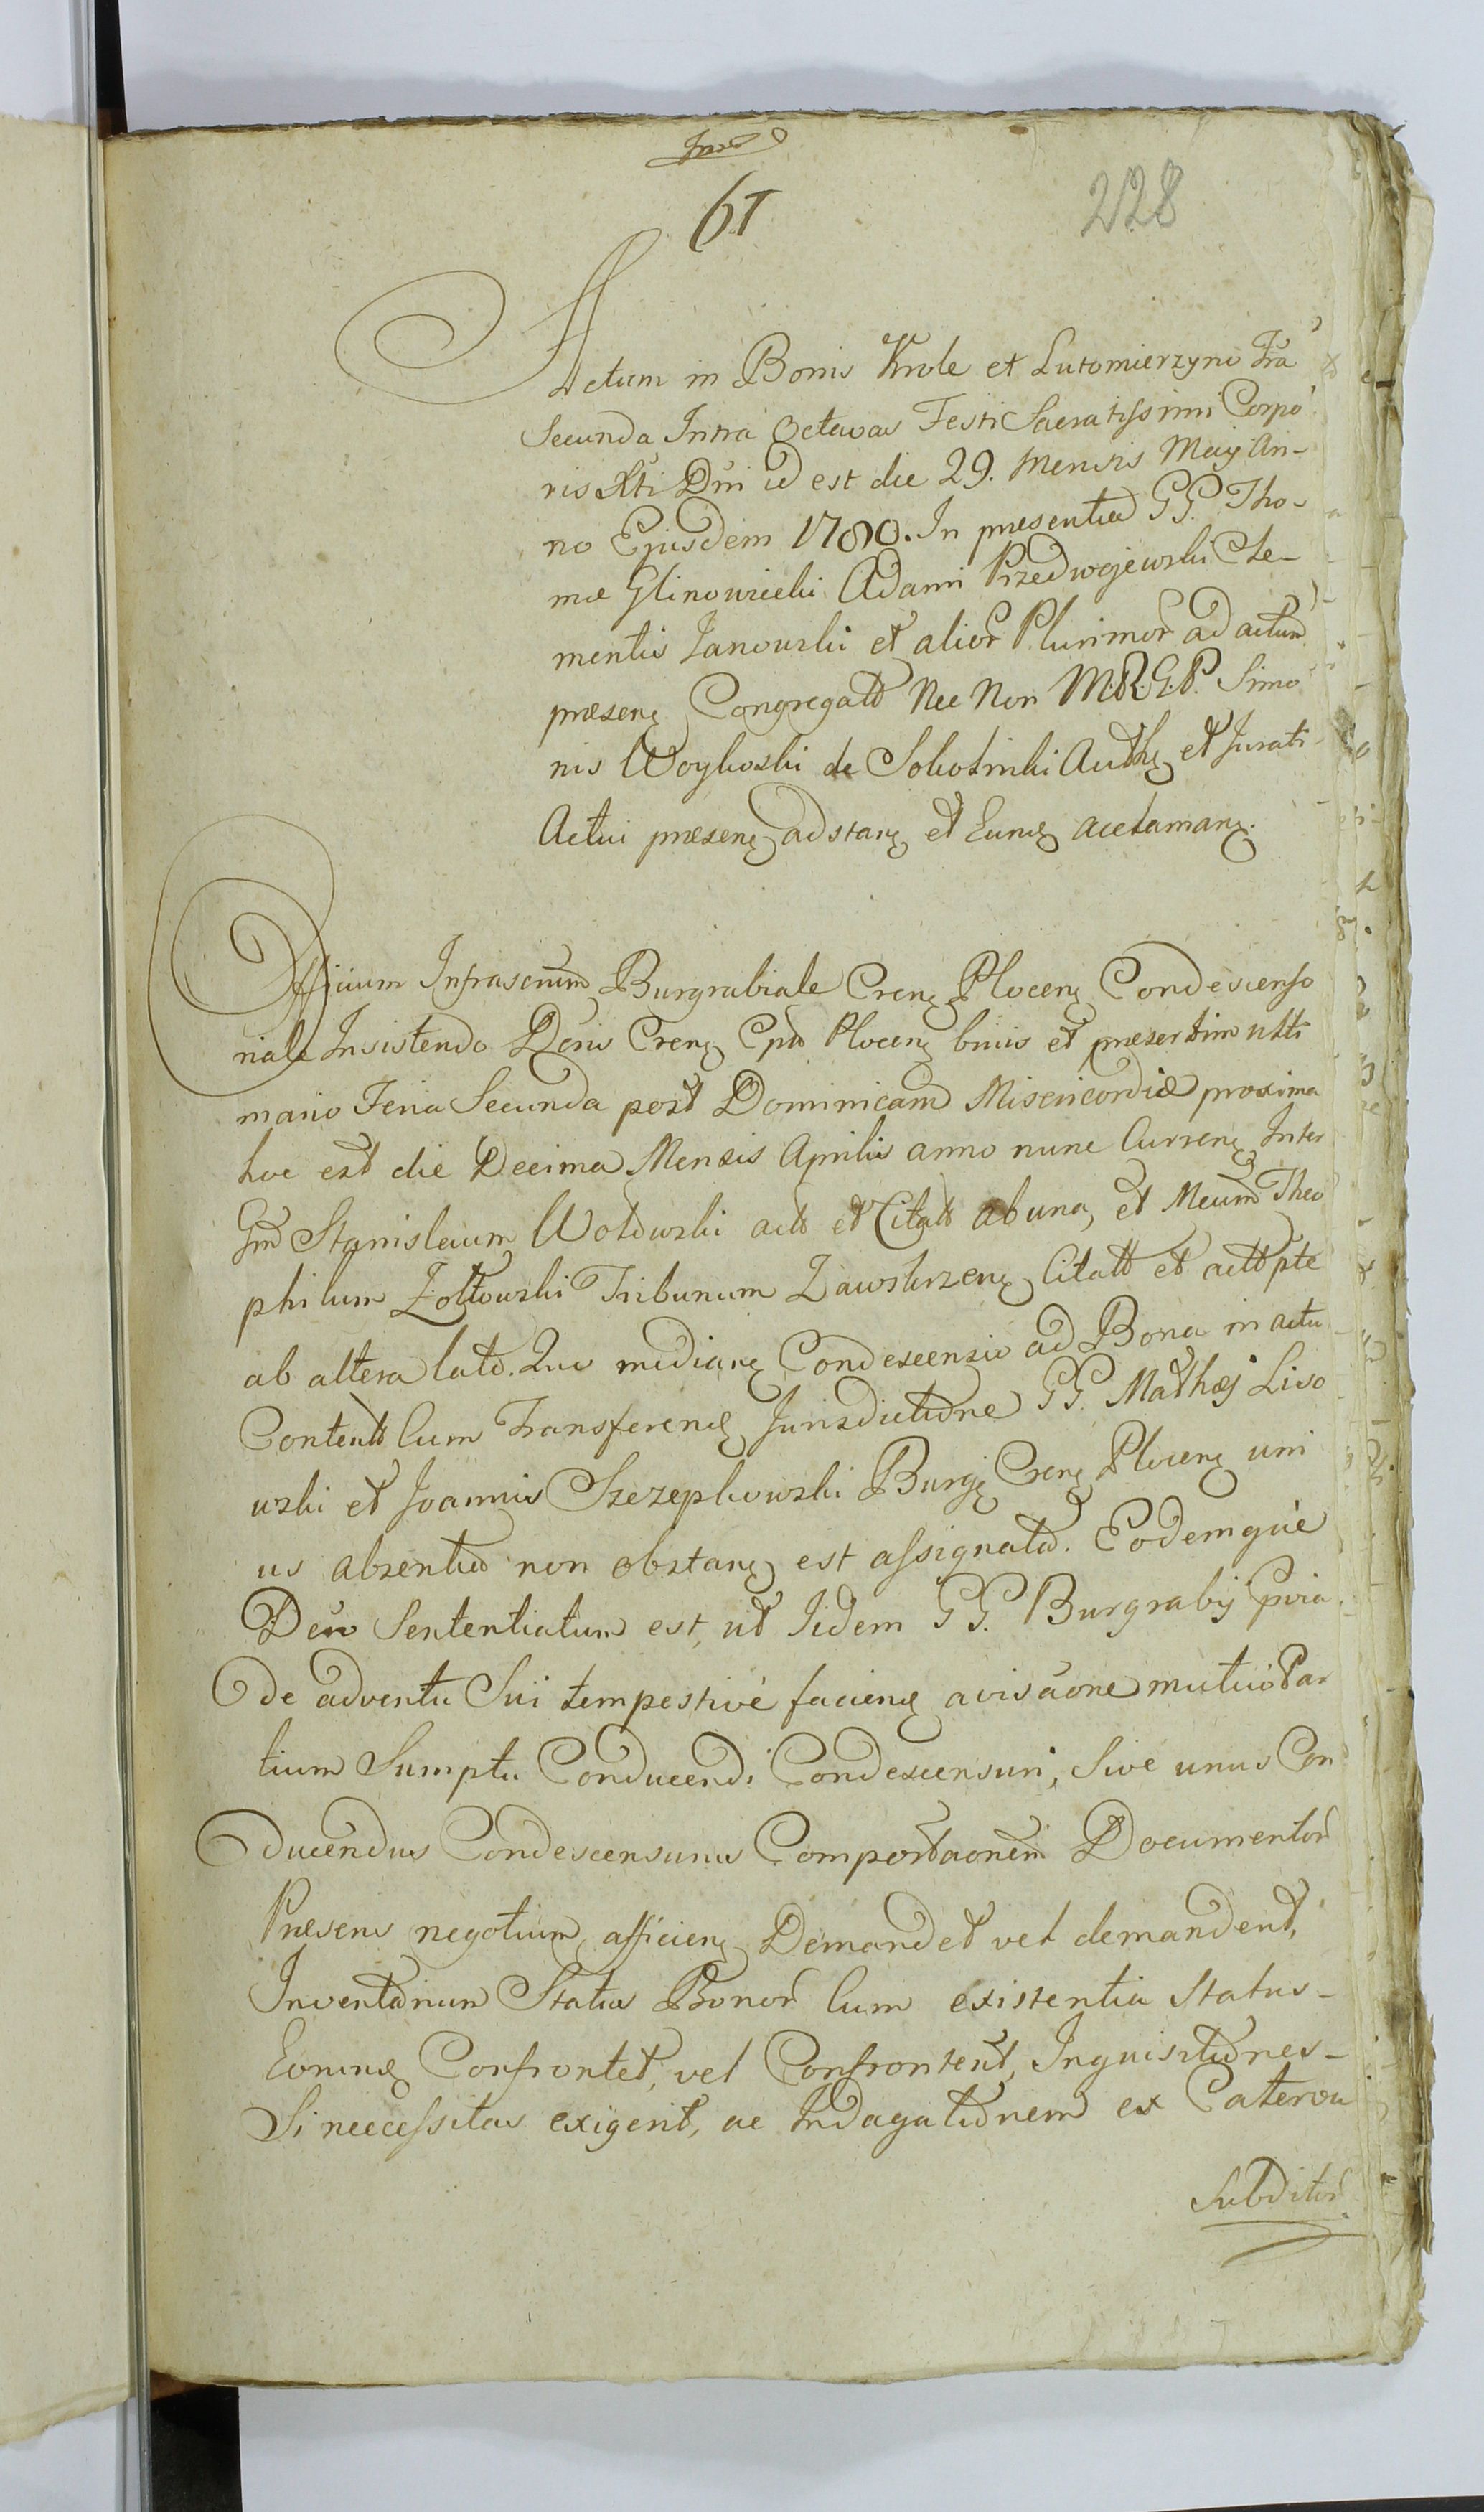 61
228
Actum in Bonis Krole et Lutomierzyno Fra
Secunda Intra Octavas Festi Sacratissimi Corpo
ris Xti Dni id est die 29. Mensis Maij An-
no Ejusdem 1780. In presentia GG. Tho-
mæ Glinowiecki Adami Przedwojewski Cle-
mentis Janowski et alior Plurimor ad actum
præsenę Congregatt Nec Non M.R.G.P. Simo
nis Woykoski de Sokolniki Authę et Jurati
Actui præsenę adstanę et Eundę acclamanę.
Officium Infrascrtum Burgrabiale Crenę Plocenę Condescenso
riale Insistendo Dctis Crenę Cptt Plocenę binis et præsertim ulti
mario Feria Secunda post Dominicam Misericordiæ proxima
hoc est die Decima Mensis Aprilis anno nunc Currenę Inter
Gm Stanislaum Wołowski actt et Citatt ab una, et Mcum Theo
philum Żołtowski Tribunum Zawskrzenę Citatt et actt pte
ab altera lato. Quo medianę Condescensio ad Bona in actu
Contentt Cum Transferendę Jurisdictione GG. Mathæj Liso
wski et Joannis Szczepkowski Burgę Crenę Plocenę uni
us absentia non obstanę est assignata. Eodemque
Dcto Sententiatum est, ut Iidem GG. Burgrabij pvia
de adventu Sui tempestivé faciendę avisaone mutuo Par
tium Sumptu Conducendi Condescensuri, Sive unus Con
ducendus Condescensurus Comportaonem Documentor
Præsens negotium afficienę Demandet vel demandent,
Inventarium Status Bonor Cum existentia Status-
Eorundę Confrontet, vel Confrontent, Inquisitiones-
Si neccessitas exigerit, ac Indagationem ex Caterva
Subditor